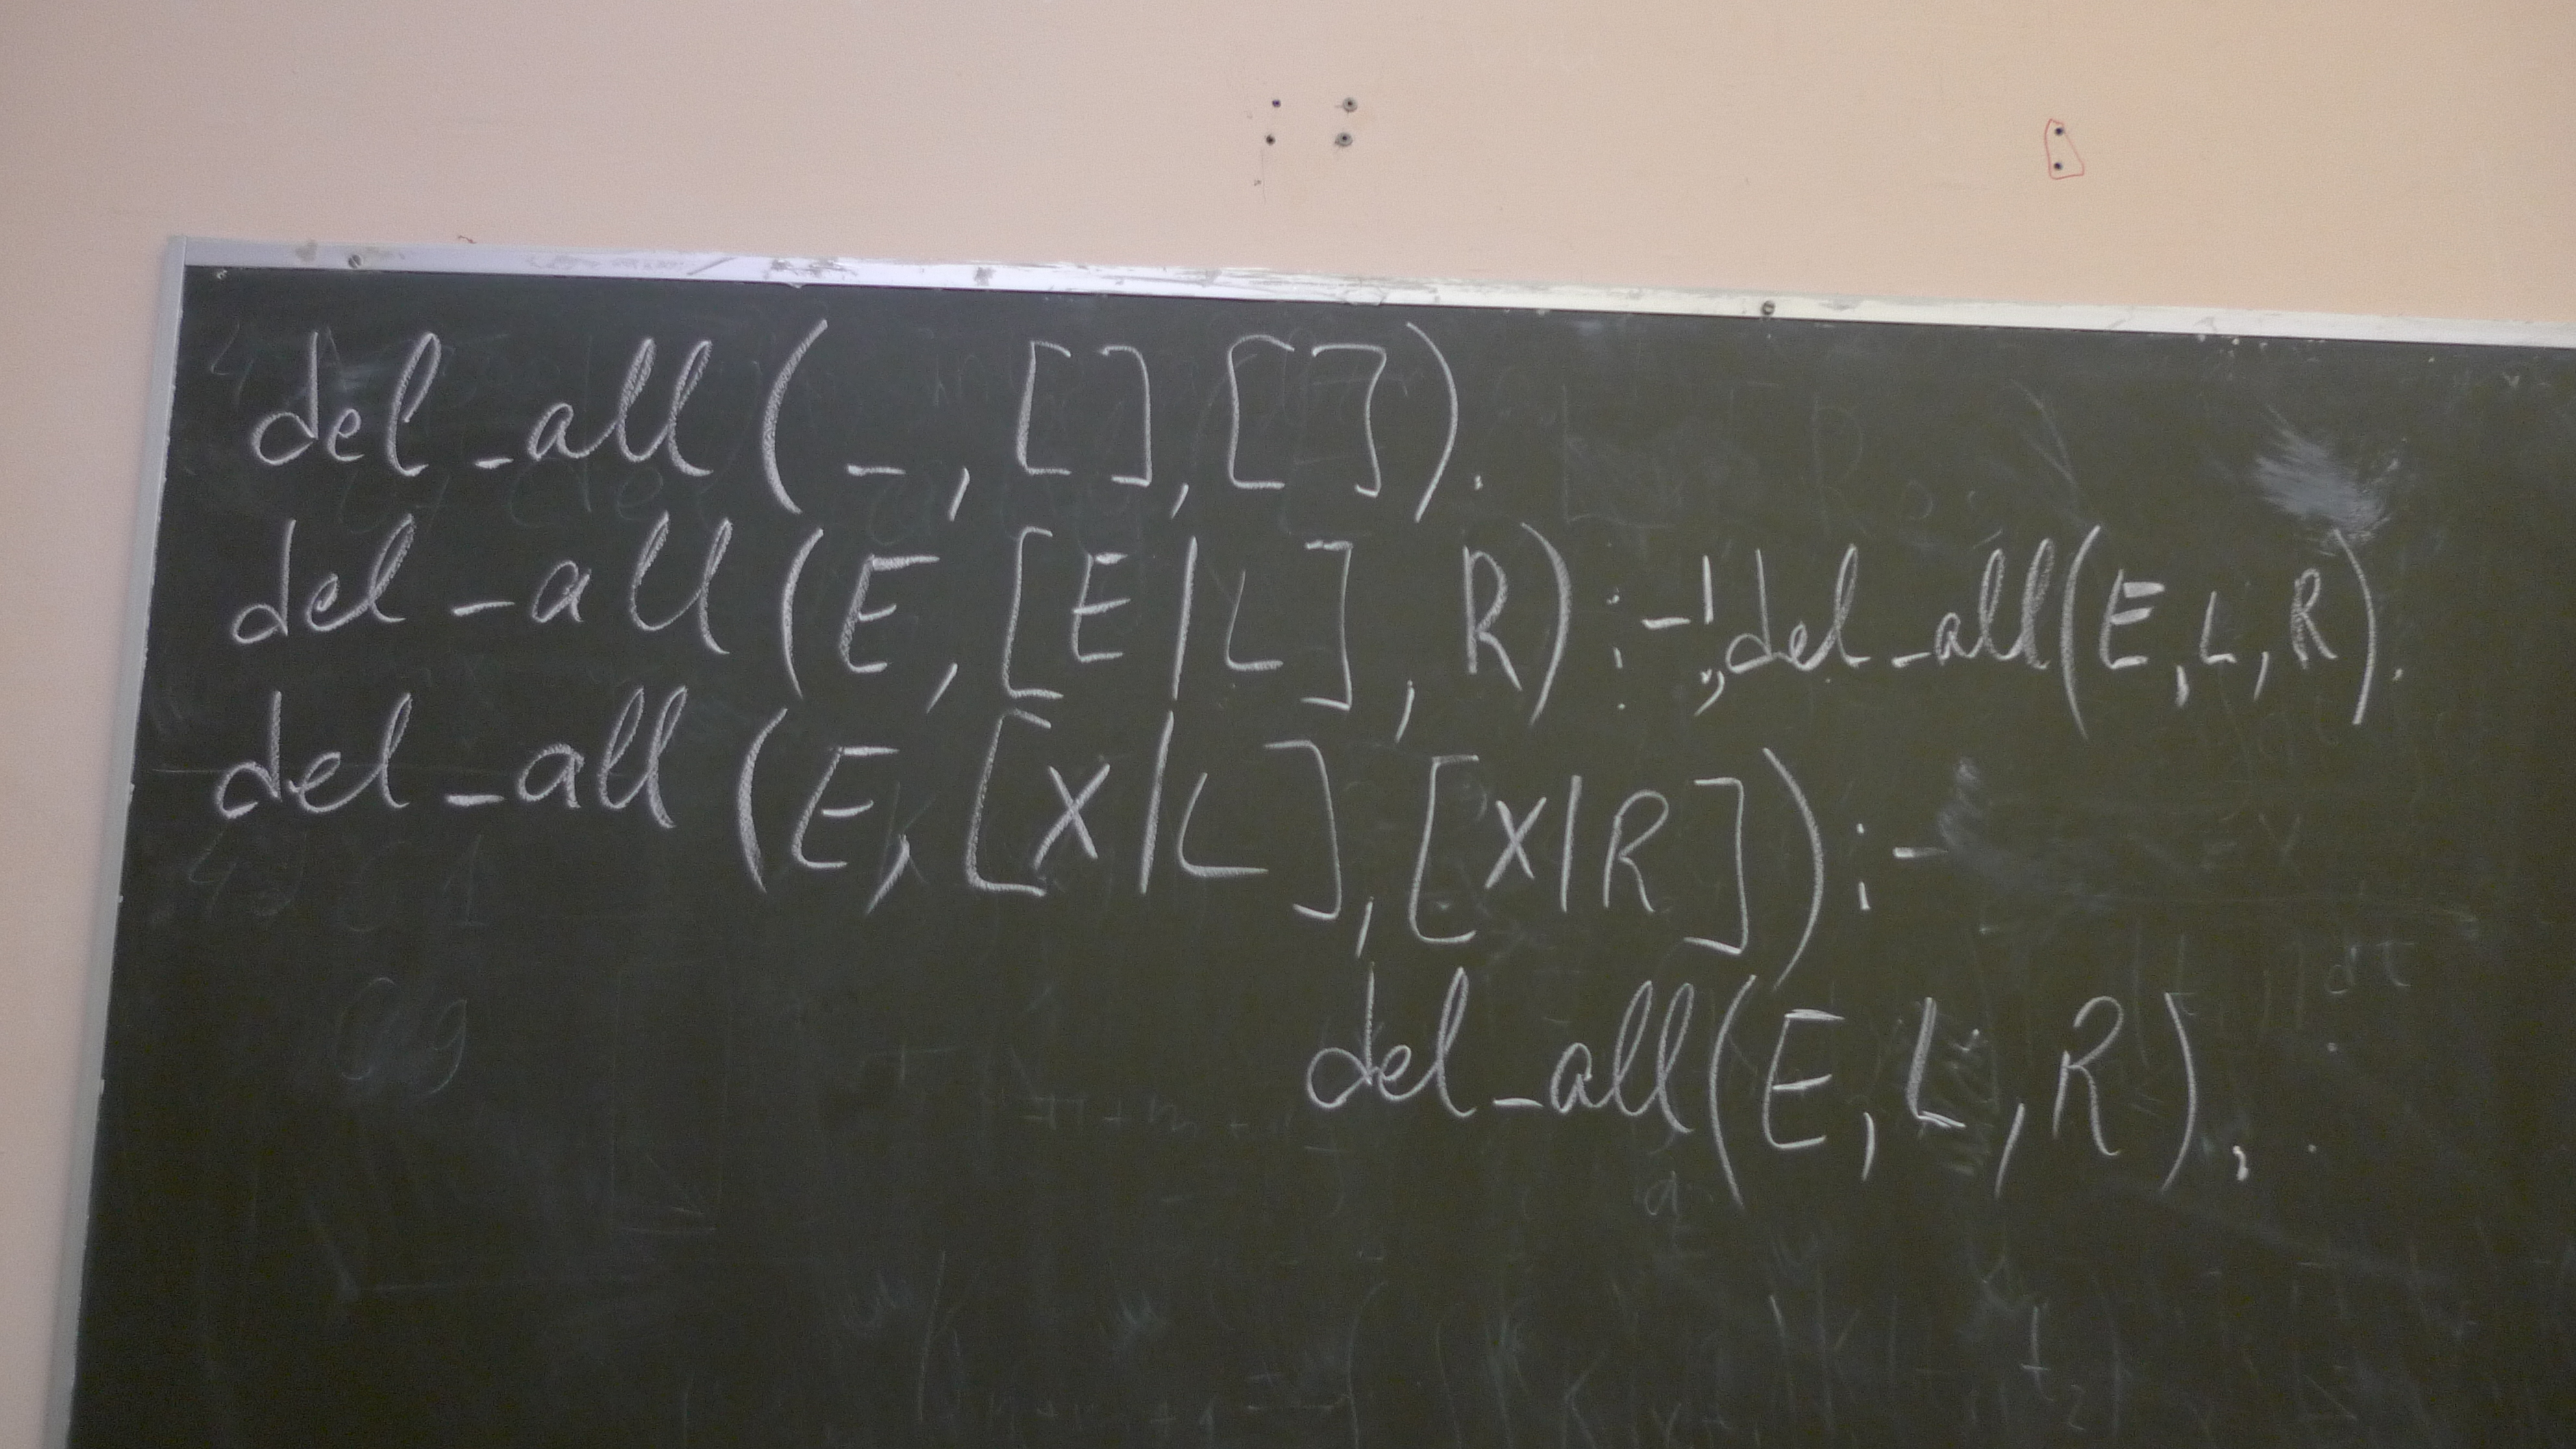 del_all(_, [], []).
del_all(E, [E|L], R):-!, del_all(E, L, R).
del_all(E, [X|L], [X|R]):-
del_all(E, L, R).